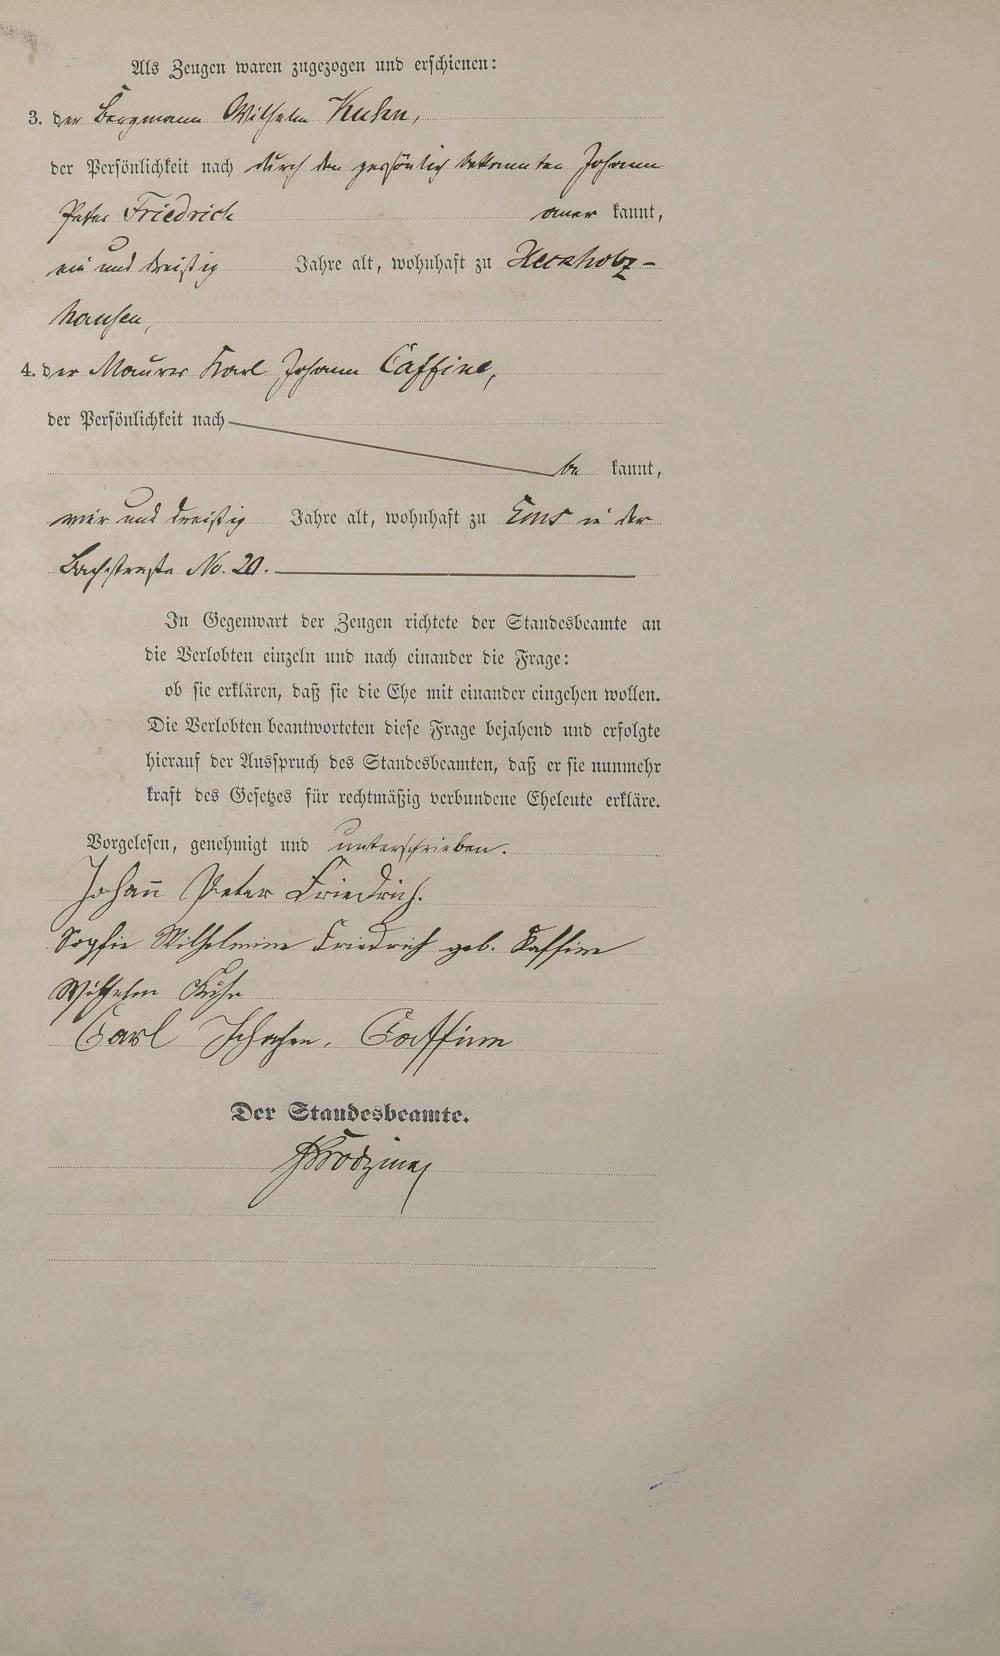 Als Zeugen waren zugezogen und erschienen:
3. der Bergmann Wilhelm Kuhn,
der Persönlichkeit nach durch den persönlich bekannten Johann
Peter Friedrich aner kannt,
ein und dreißig Jahre alt, wohnhaft zu Herzholz-
hausen,
4. der Maurer Karl Johann Caffine,
der Persönlichkeit nach
be kannt,
vier und dreißig Jahre alt, wohnhaft zu Ems in der
Bachstraße No. 20.
In Gegenwart der Zeugen richtete der Standesbeamte an
die Verlobten einzeln und nach einander die Frage:
ob sie erklären, daß sie die Ehe mit einander eingehen wollen.
Die Verlobten beantworteten diese Frage bejahend und erfolgte
hierauf der Ausspruch des Standesbeamten, daß er sie nunmehr
kraft des Gesetzes für rechtmäßig verbundene Eheleute erkläre.
Vorgelesen, genehmigt und unterschrieben.
Johann Peter Friedrich.
Sophie Wilhelmine Friedrich geb. Kaffine
Wilhelm Kuhn
Carl Johann Caffine
Der Standesbeamte.